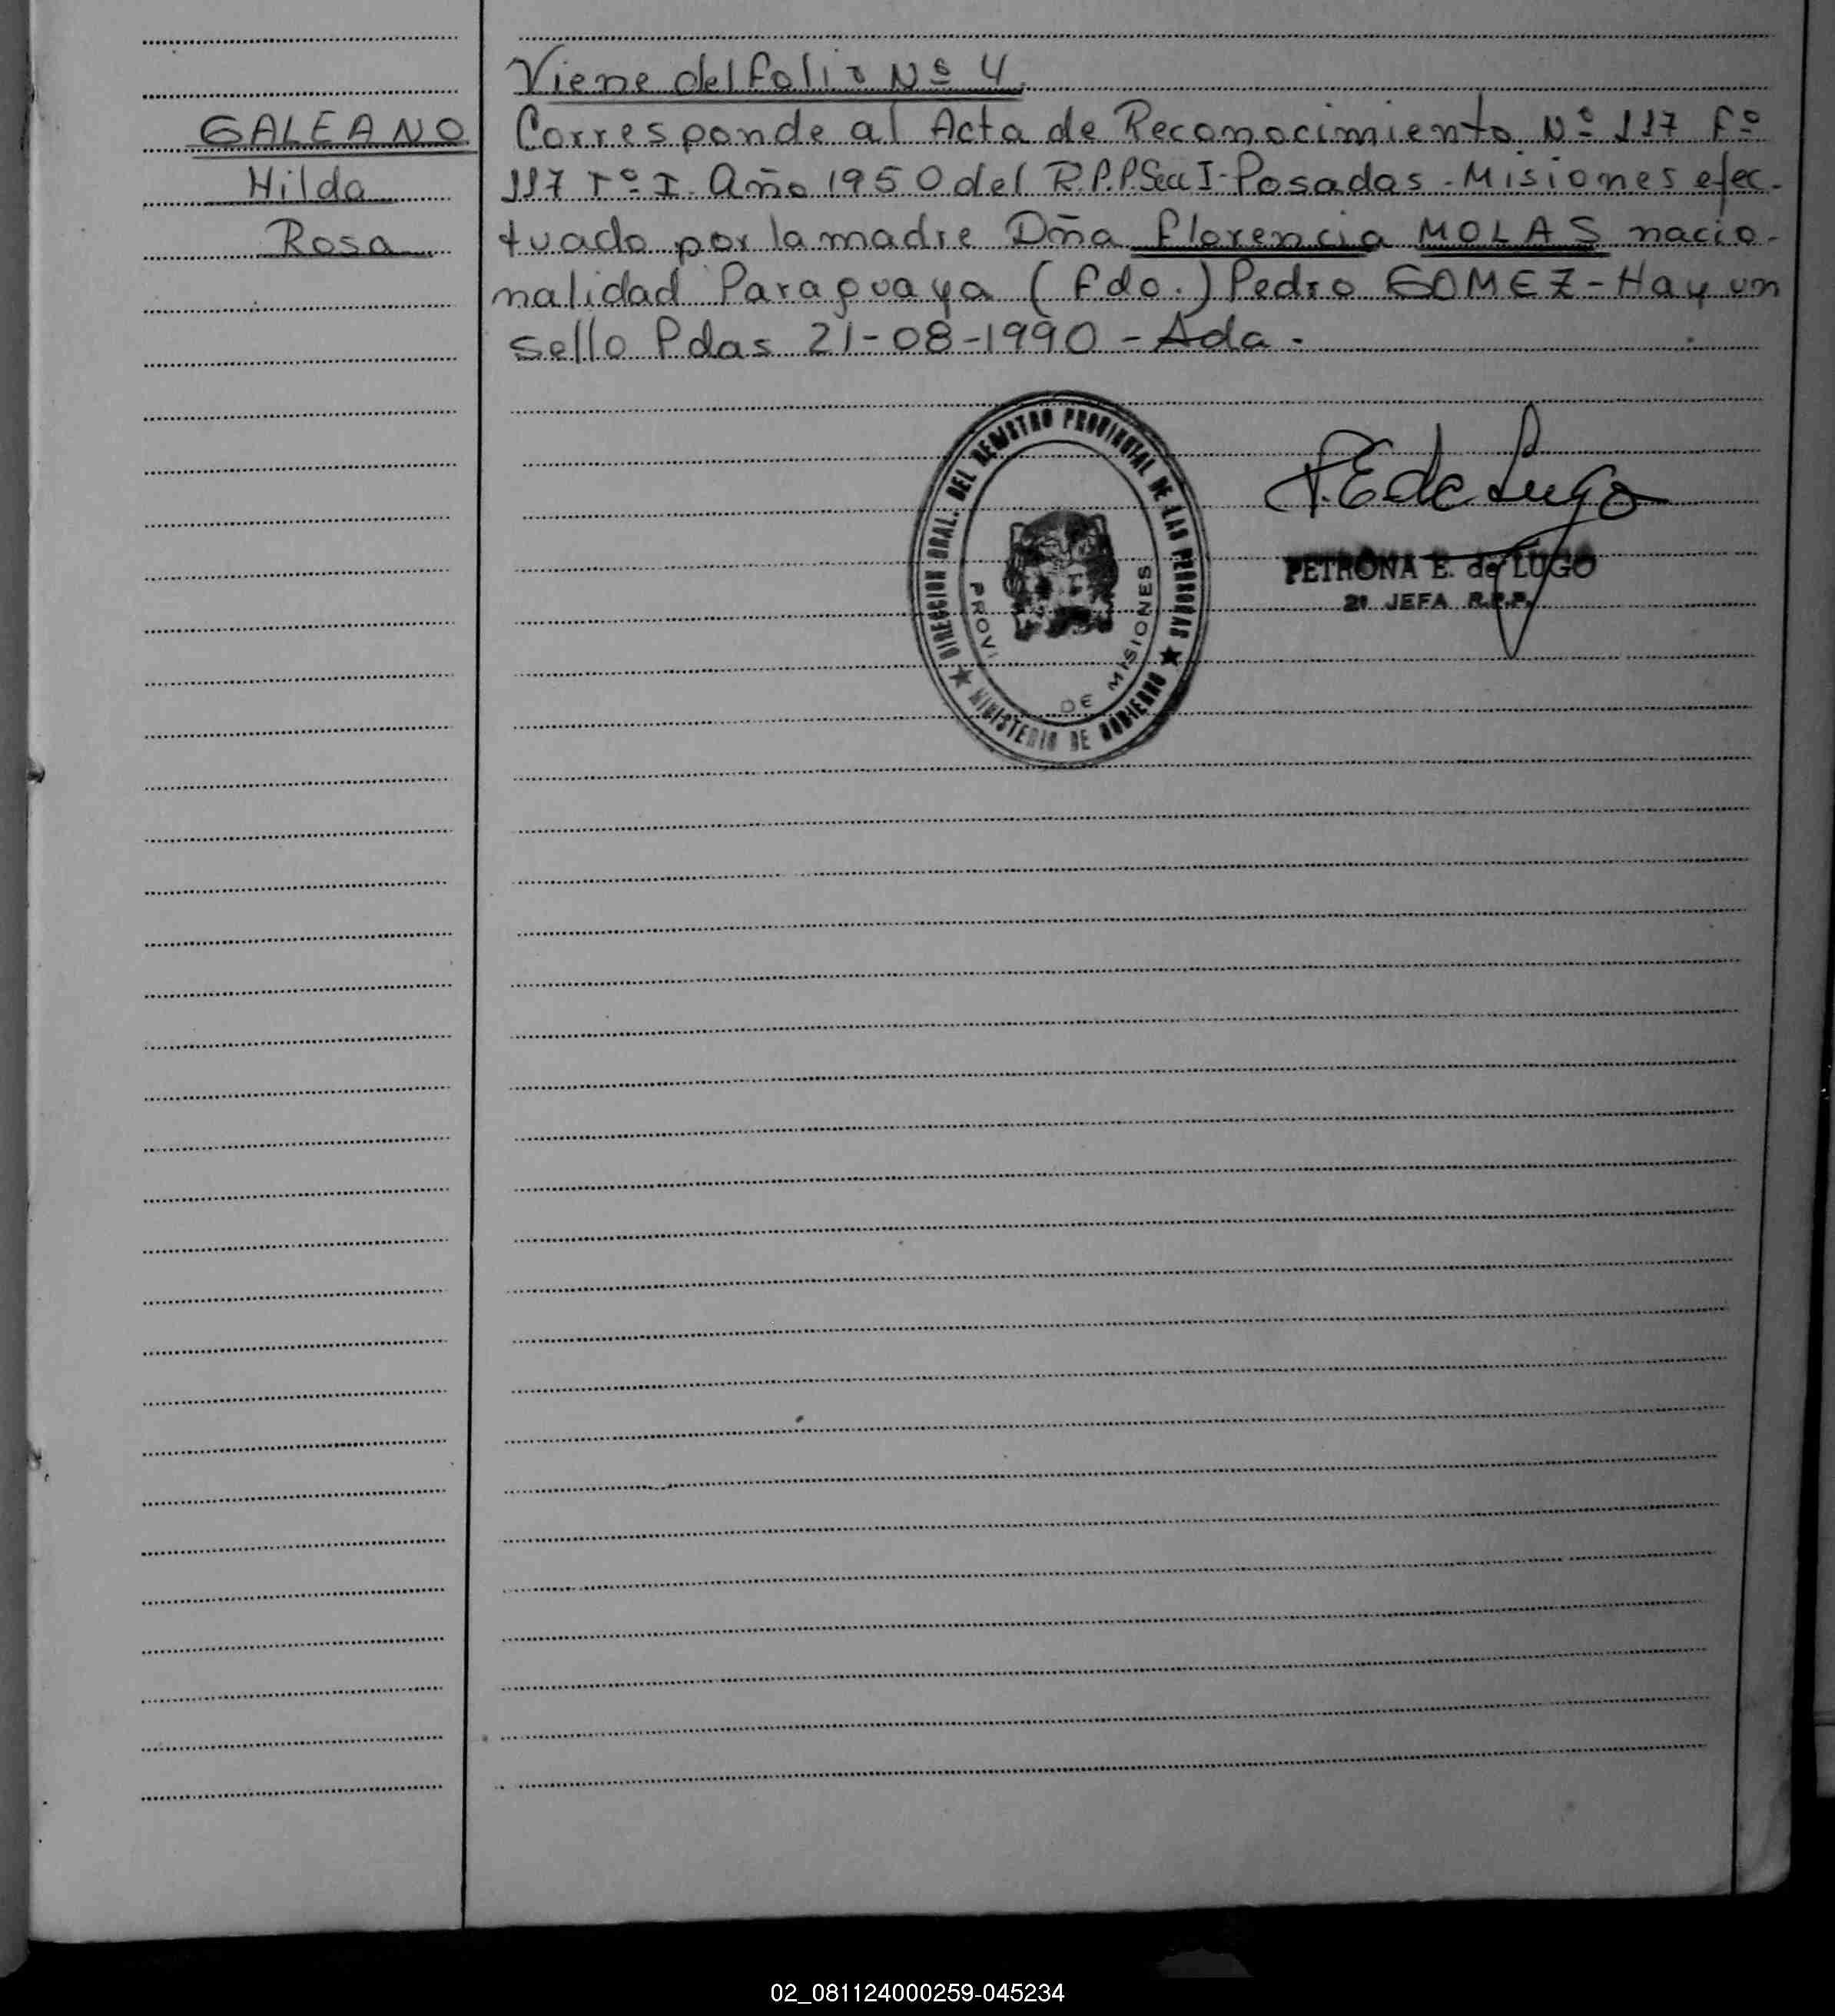 Viene del folio Nº 4.
GALEANO
Hilda
Rosa
Corresponde al Acta de Reconocimiento Nº 117 Fº
117 Tº I. Año 1950 del R.P.P. Secc I - Posadas - Misiones efec-
tuado por la madre Dña Florencia MOLAS nacio-
nalidad Paraguaya (Fdo.) Pedro GOMEZ - Hay un
sello Pdas 21-08-1990 - Ada -
DIRECCION GRAL. DEL REGISTRO PROVINCIAL DE LAS PERSONAS
★ MINISTERIO DE GOBIERNO ★
PROVI
DE MISIONES
P. E de Lugo
PETRONA E. de LUGO
2ª JEFA R.P.P.
02_081124000259-045234